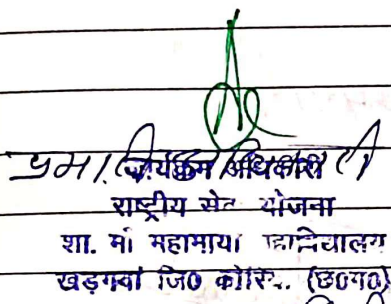 कार्यक्रम अधिकारी
राष्ट्रीय सेवा योजना
शा. माँ महामाया महाविद्यालय
खड़गवां जि0 कोरिया (छ0ग0)